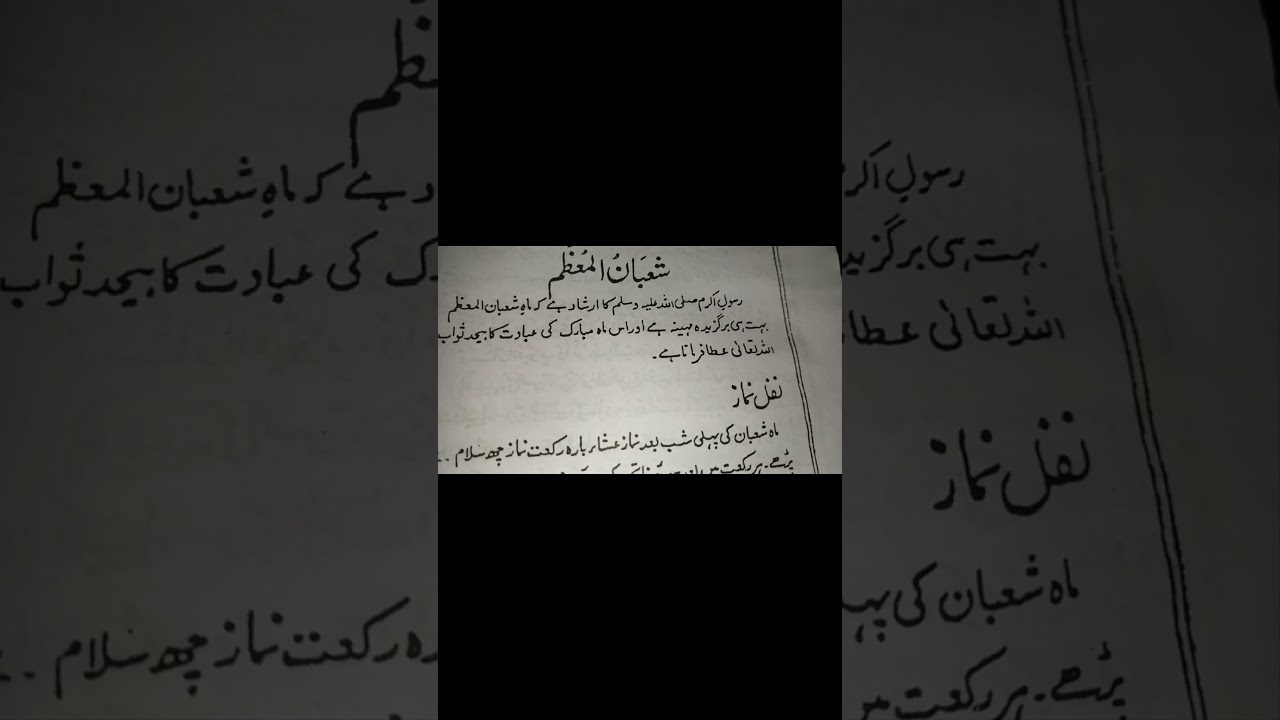 شعبان المعظم
رسول اکرم صلی اللہ علیہ وسلم کا ارشاد ہے کہ ماہِ شعبان المعظم
بہت ہی برگزیدہ مہینہ ہے اور اس ماہ مبارک کی عبادت کا بیحد ثواب
اللہ تعالیٰ عطا فرماتا ہے۔
نفل نماز
ماہ شعبان کی پہلی شب بعد نماز عشاء بارہ رکعت نماز چھ سلام ..
پڑھے۔ ہر رکعت میں